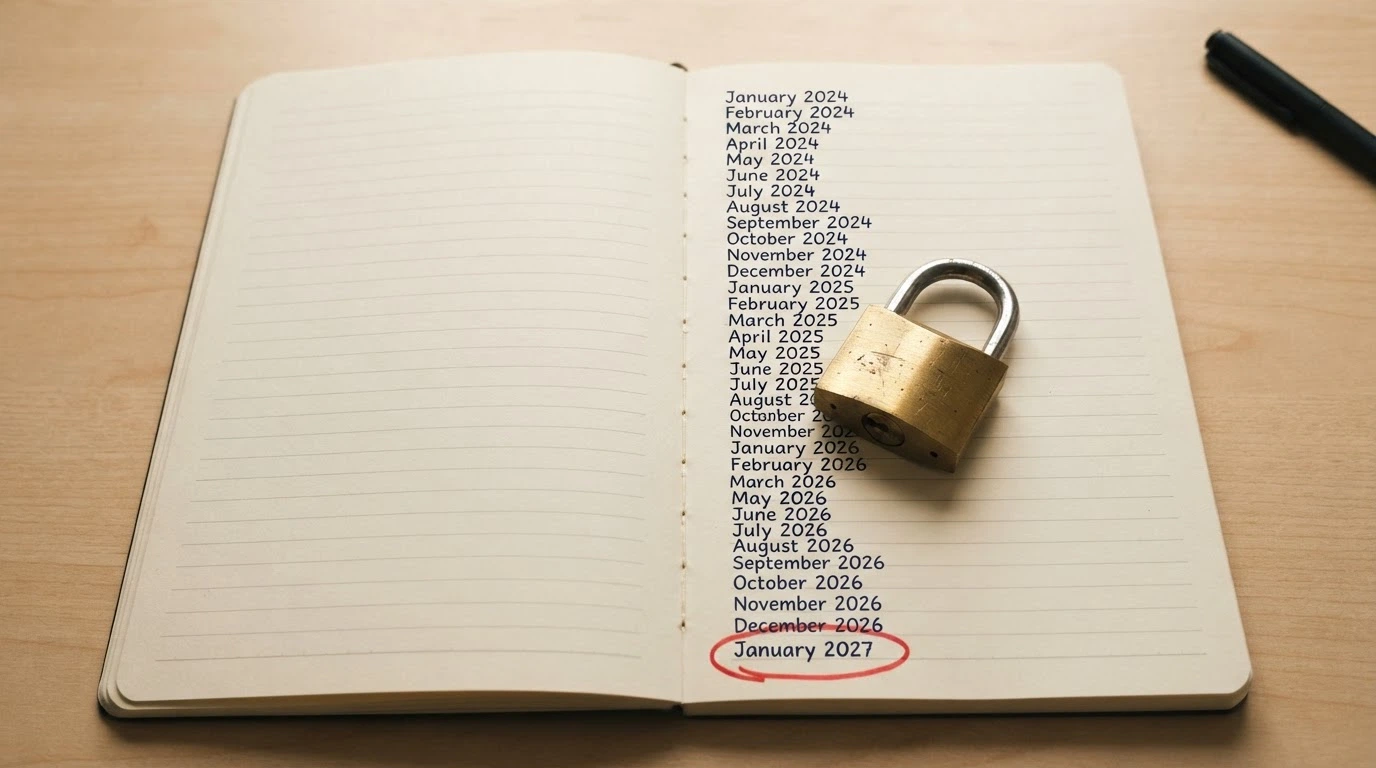 January 2024
February 2024
March 2024
April 2024
May 2024
June 2024
July 2024
August 2024
September 2024
October 2024
November 2024
December 2024
January 2025
February 2025
March 2025
April 2025
May 2025
June 2025
July 2025
August
November
January 2026
February 2026
March 2026
May 2026
June 2026
July 2026
August 2026
September 2026
October 2026
November 2026
December 2026
January 2027